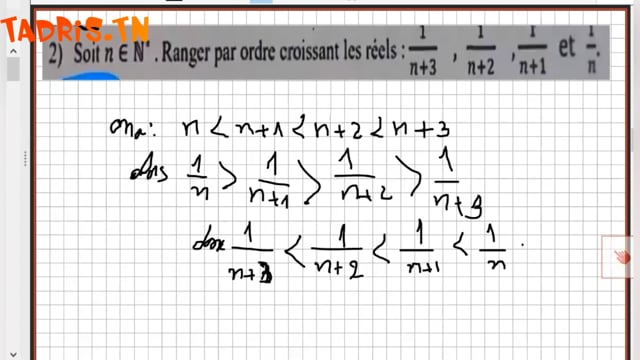 TADRIS.TN
2) Soit n ∈ N*. Ranger par ordre croissant les réels : 1/(n+3) , 1/(n+2) , 1/(n+1) et 1/n.
on a: n < n+1 < n+2 < n+3
donc 1/n > 1/(n+1) > 1/(n+2) > 1/(n+3)
donc 1/(n+3) < 1/(n+2) < 1/(n+1) < 1/n .